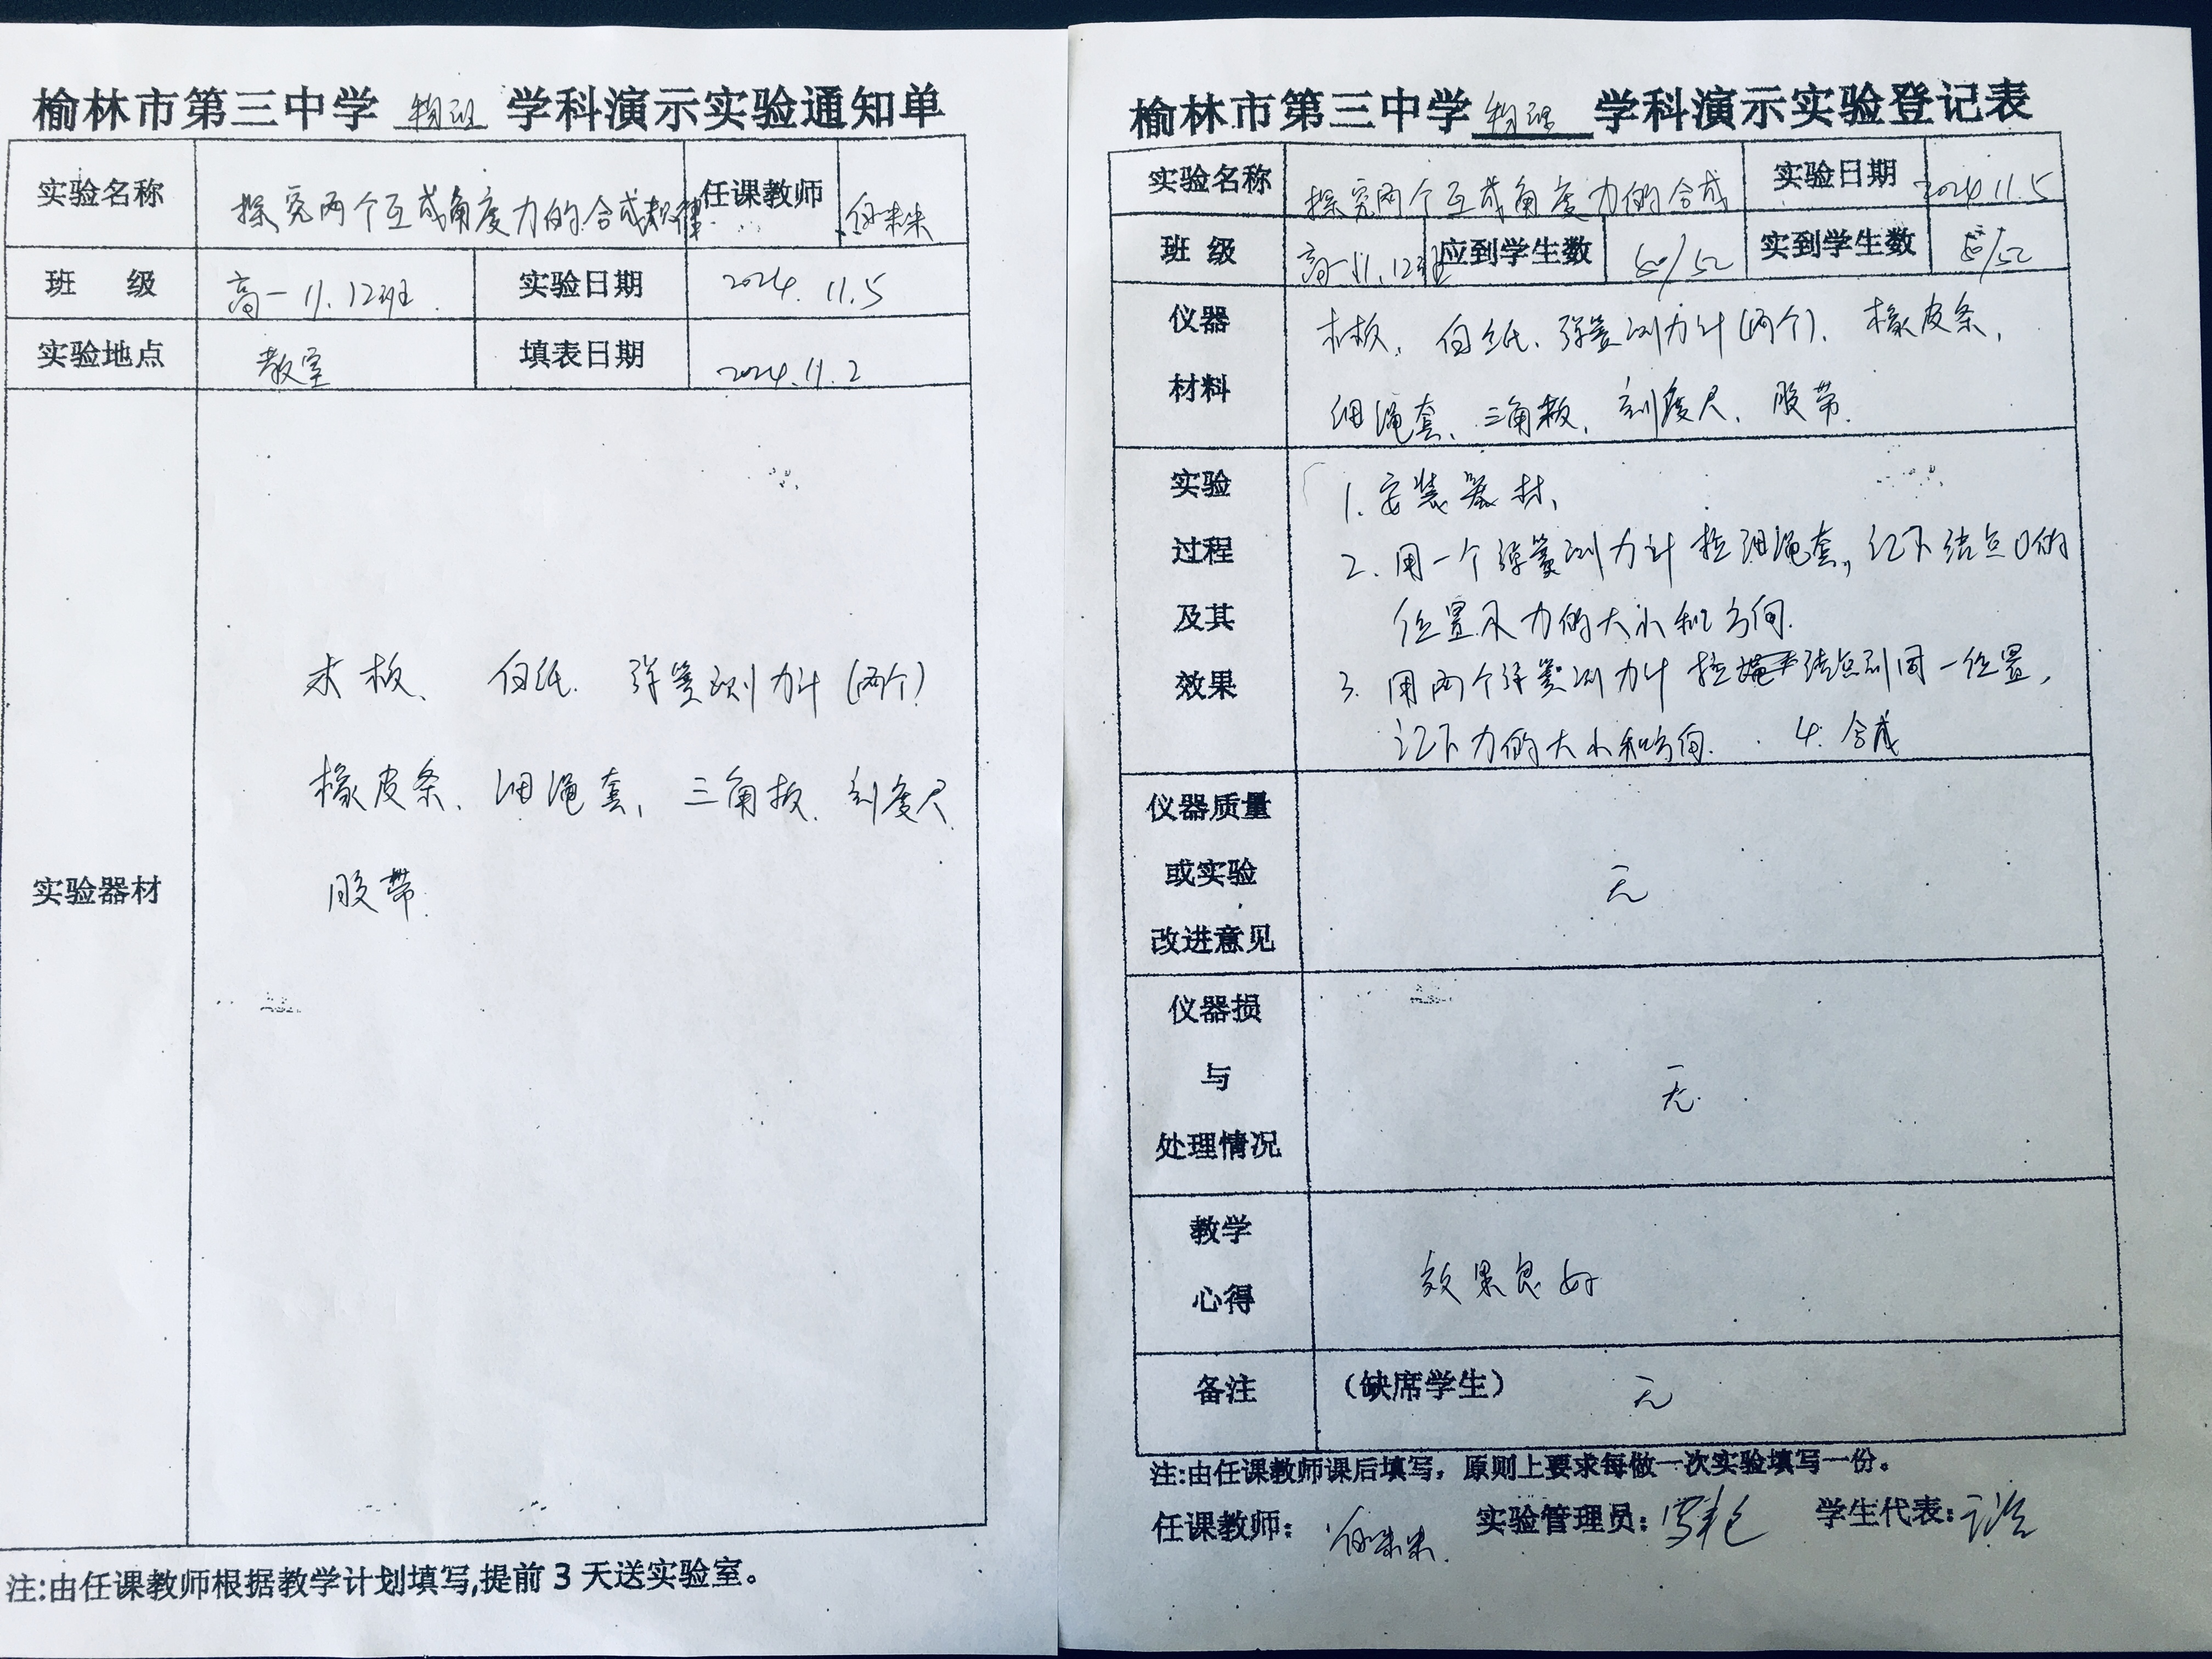 榆林市第三中学 物理 学科演示实验通知单
实验名称 探究两个互成角度力的合成规律 任课教师
班 级 高一 11.12班. 实验日期 2024. 11.5
实验地点 教室 填表日期 2024.11.2
实验器材
木板、 白纸. 弹簧测力计(两个)
橡皮条、细绳套、三角板. 刻度尺.
胶带.
注:由任课教师根据教学计划填写,提前3天送实验室。
榆林市第三中学 物理 学科演示实验登记表
实验名称 探究两个互成角度力的合成 实验日期 2024.11.5
班 级 高一11.12班 应到学生数 50/52 实到学生数 50/52
仪器
材料
木板、白纸、弹簧测力计(两个). 橡皮条、
细绳套、三角板、刻度尺、胶带.
实验
过程
及其
效果
1. 安装器材、
2. 用一个弹簧测力计拉细绳套,记下结点O的
位置及力的大小和方向.
3. 用两个弹簧测力计拉结点到同一位置,
记下力的大小和方向. 4. 合成
仪器质量
或实验
改进意见
无
仪器损
与
处理情况
无.
教学
心得
效果良好
备注 (缺席学生) 无
注:由任课教师课后填写，原则上要求每做一次实验填写一份。
任课教师: 实验管理员: 学生代表: